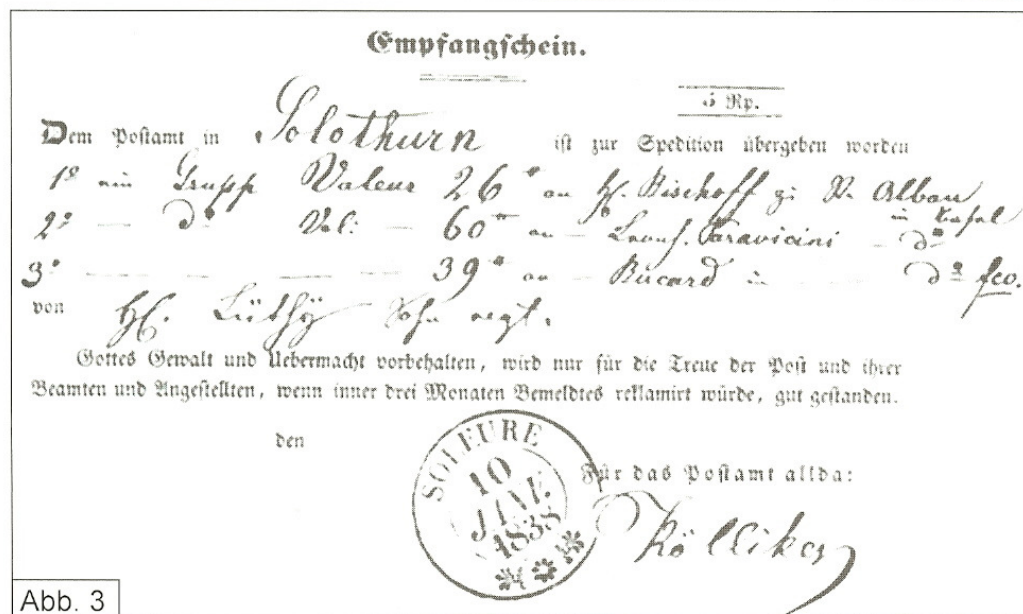 Empfangschein.
5 Rp.
Dem Postamt in Solothurn ist zur Spedition übergeben worden
1º ein Grupp Valeur 26 an H. Bischoff zu St. Alban
in Basel
2º — dº Val: — 60 an — Paravicini — dº
3º — — — 39 an — Bucard in — dº fco.
von H. Lüthy Sohn
Gottes Gewalt und Uebermacht vorbehalten, wird nur für die Treue der Post und ihrer
Beamten und Angestellten, wenn inner drei Monaten Bemeldtes reklamirt würde, gut gestanden.
den
SOLEURE
10
JANV.
1838
Für das Postamt allda:
Kölliker
Abb. 3